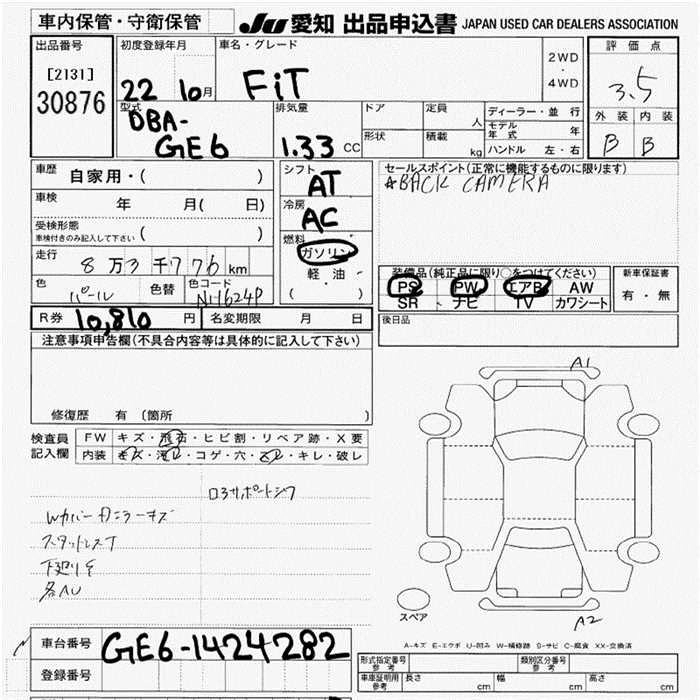 車内保管・守衛保管
JU 愛知 出品申込書 JAPAN USED CAR DEALERS ASSOCIATION
出品番号
[2131]
30876
初度登録年月
22 10月
車名・グレード
FiT
2WD
・
4WD
評価点
3.5
外装 内装
B B
型式
DBA-
GE6
排気量
1.33 CC
ドア
定員 人
形状
積載 kg
ディーラー・並行
モデル年式 年
ハンドル 左・右
車歴
自家用・( )
車検 年 月( 日)
受検形態
車検付きのみ記入して下さい ( )
走行
8万3千776km
色 パール
色替
色コード NH624P
シフト
AT
冷房
AC
燃料
ガソリン
軽油
( )
セールスポイント(正常に機能するものに限ります)
☆BACK CAMERA
装備品(純正品に限り○をつけてください)
PS PW エアB AW
SR ナビ TV カワシート
新車保証書
有・無
後日品
R券 10,810 円
名変期限 月 日
注意事項申告欄(不具合内容等は具体的に記入して下さい)
修復歴 有(箇所 )
検査員
記入欄
FW キズ・飛石・ヒビ割・リペア跡・X要
内装 キズ・汚レ・コゲ・穴・スレ・キレ・破レ
ロアサポートシワ
Wカバー
スタットレスT
下廻りサ
各AU
A1
スペア
A2
A-キズ E-エクボ U-凹み W-補修跡 S-サビ C-腐食 XX-交換済
車台番号 GE6-1424282
登録番号
形式指定番号
参考
類別区分番号
参考
車庫証明用
参考
長さ cm
幅 cm
高さ cm